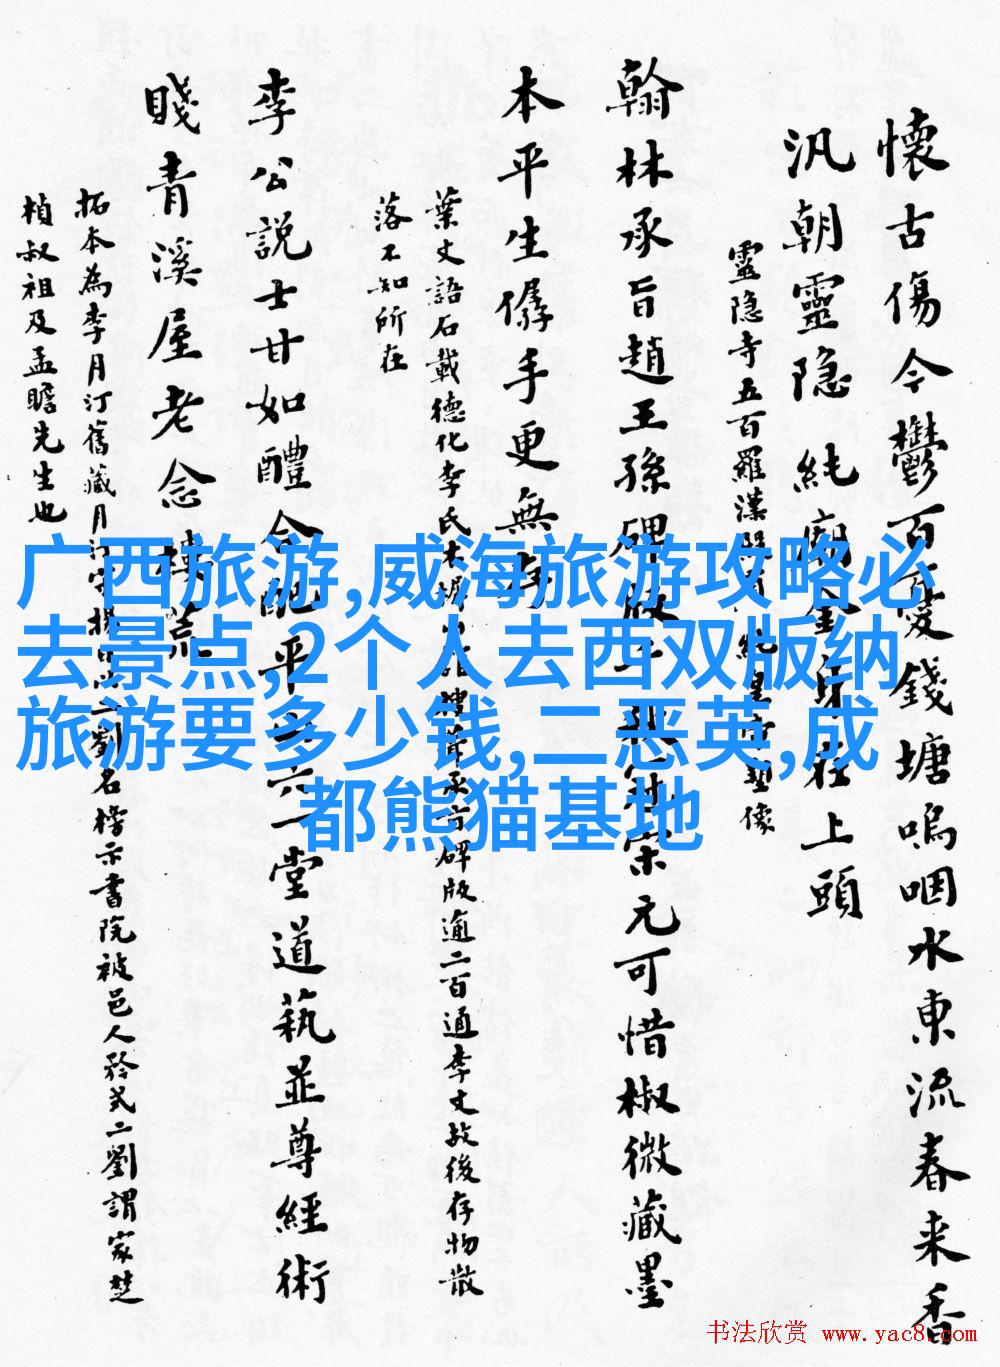 懷古傷今鬱百憂錢塘嗚咽水東流春来香
汎朝靈隐純廟金身在上頭
靈隐寺五百羅漢純皇帝塑像
翰林承旨趙王孫碑版宋元可惜椒微藏墨
本平生儔手更無
葉文語石載德化李氏木碑版逾二百通李文故後存物散
落不知所在
李公説士甘如醴合配平六一堂道藝並尊經術
賤青溪屋老念
拓本為李月汀舊藏月汀二劉名榜示書院被邑人矜式二劉謂家楚
楨叔祖及孟瞻先生也
广西旅游,威海旅游攻略必
去景点,2个人去西双版纳
旅游要多少钱,二恶英,成
都熊猫基地
书法欣赏 www.yac8.com